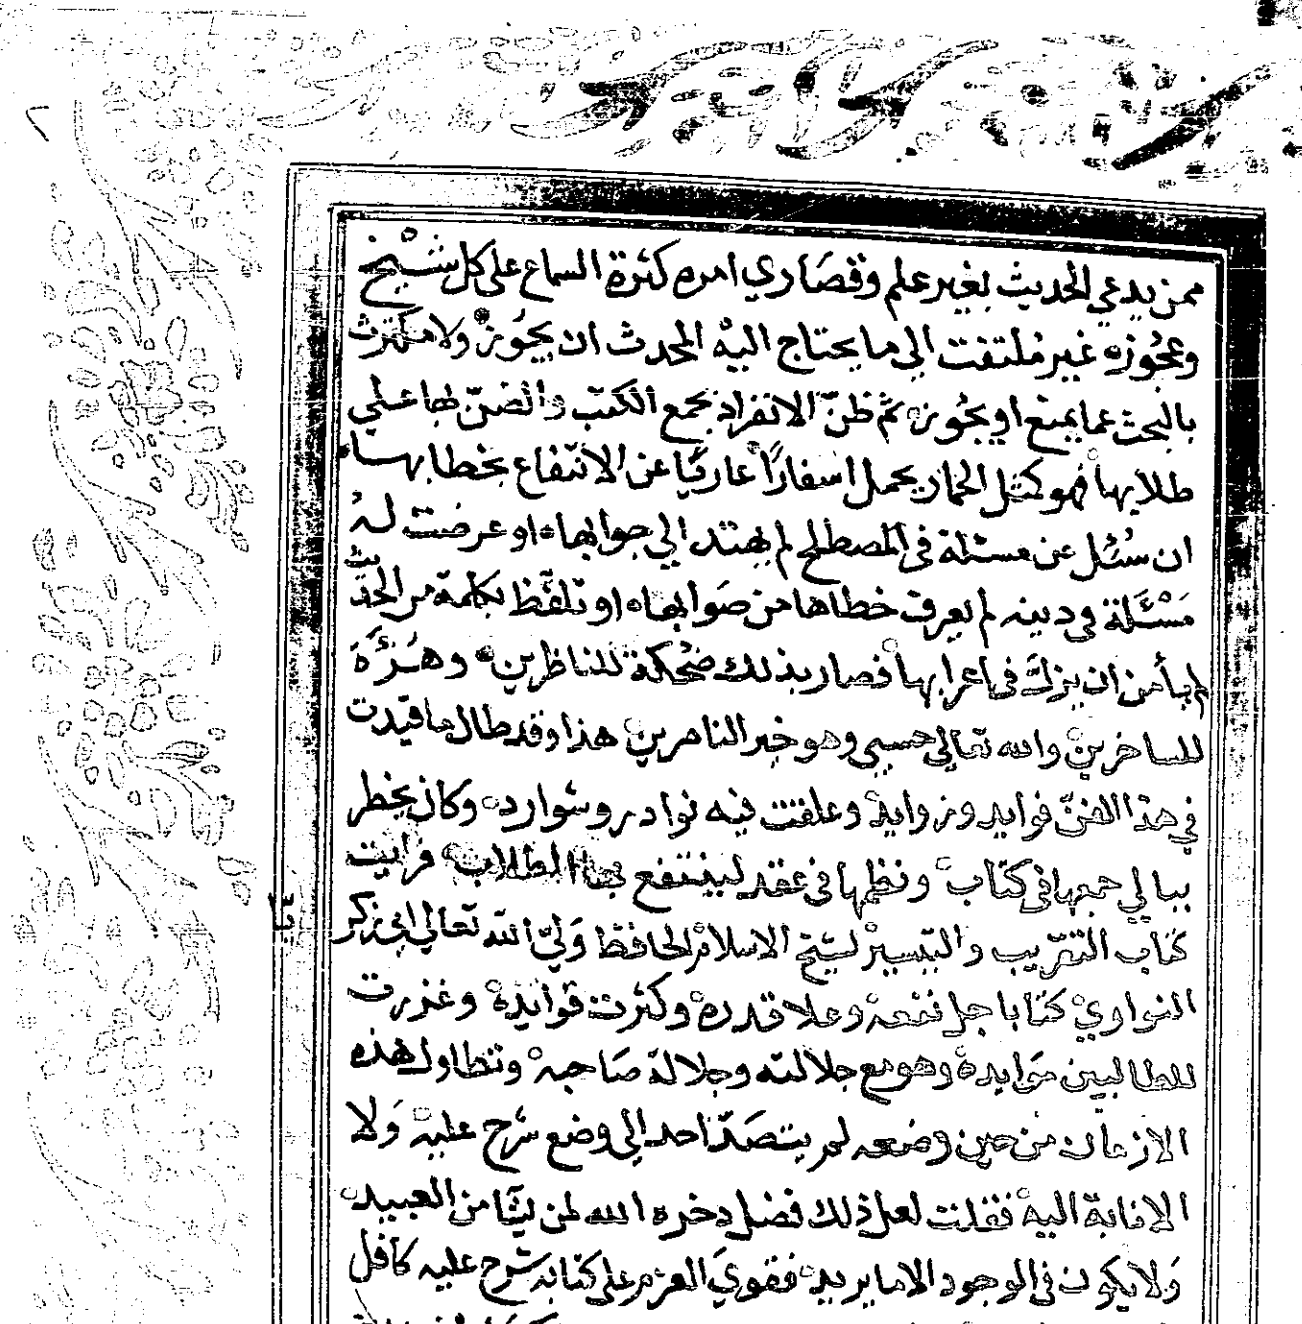 ممن يدعي الحديث بغير علم وقصاري امره كثرة السماع علي كل شيخ
وعجوزه غير ملتفت الي ما يحتاج اليه المحدث ان يحوزه ولا مكترث
بالبحث عما يمنع او يجوزه ثم ظن الانفراد بجمع الكتب والضن بها علي
طلابها فهو كمثل الحمار يحمل اسفارا عاريا عن الانتفاع بخطابها
ان سئل عن مسئلة في المصطلح لم يهتد الي جوابها او عرضت له
مسئلة في دينه لم يعرف خطاها من صوابها او تلفظ بكلمة من الحديث
لم يأمن ان يزل في اعرابها فصار بذلك ضحكة للناظرين وهزأة
للساخرين والله تعالي حسبي وهو خير الناصرين هذا وقد طال ما قيدت
في هذا الفن فوايد وزوايد وعلقت فيه نوادر وشوارد وكان يخطر
ببالي جمعها في كتاب ونظمها في عقد لينتفع بها الطلاب فرايت
كتاب التقريب والتيسير لشيخ الاسلام الحافظ ولي الله تعالي ابي زكريا
النواوي كتابا جل نفعه وعلا قدره وكثرت فوايده وغزرت
للطالبين موايده وهو مع جلالته وجلالة صاحبه وتطاول هذه
الازمان من حين وضعه لم يتصد احد الي وضع شرح عليه ولا
الانابة اليه فقلت لعل ذلك فضل دخره الله لمن يشا من العبيد
ولا يكون في الوجود الا ما يريد فقوي العزم علي كتابة شرح عليه كافل